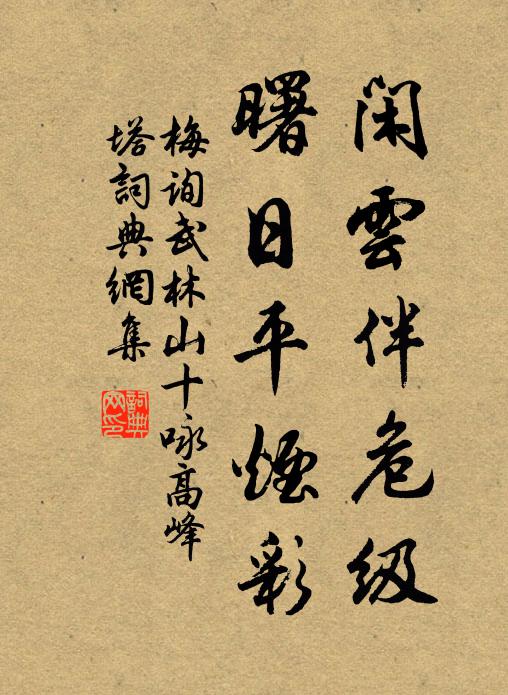 闲雲伴危级
曙日平煙彩
梅询武林山十咏高峰
塔詞典網集
詞典网印